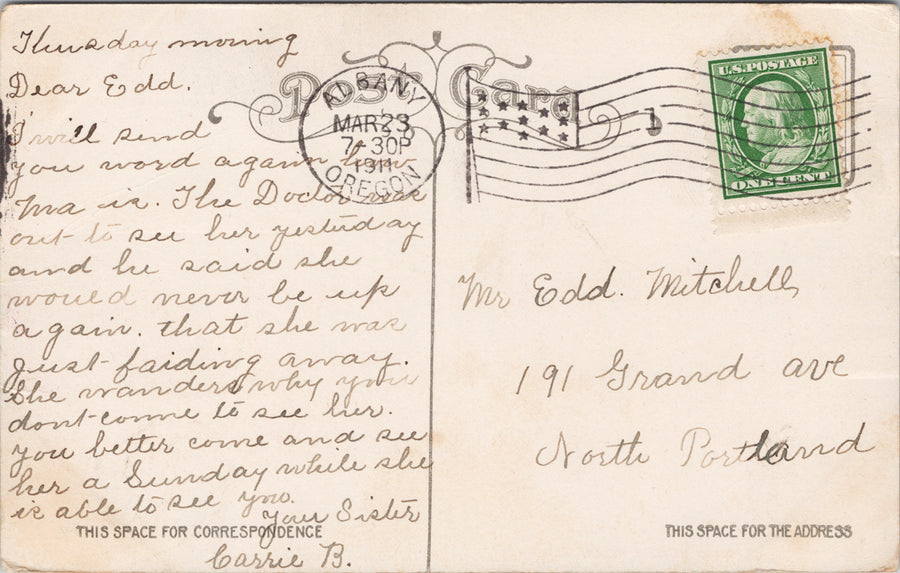 Thusday moring
Dear Edd.
I will send
you word agann how
Ma is. The Doctor was
out to see her yesturday
and he said she
would never be up
again. that she was
just faiding away.
She wanders why you
dont come to see her.
you better come and see
her a Sunday while she
is able to see you.
Your Sister
Carrie B.
THIS SPACE FOR CORRESPONDENCE
Post Card
ALBANY
MAR 23
7-30P
1911
OREGON
1
U.S. POSTAGE
ONE CENT
Mr Edd. Mitchell
191 Grand ave
North Portland
THIS SPACE FOR THE ADDRESS